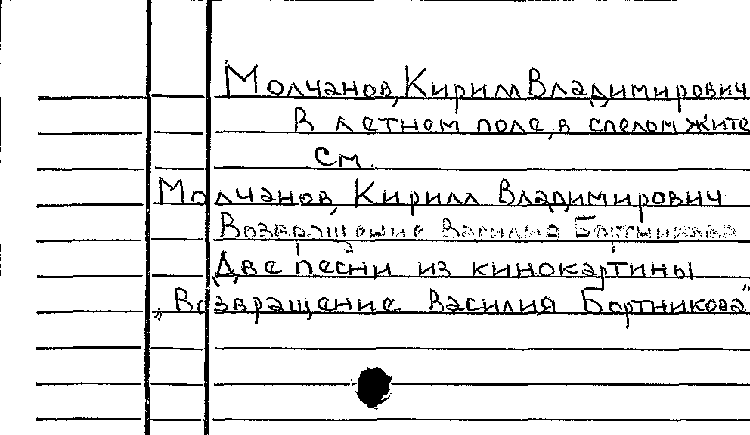 Молчанов, Кирилл Владимирович
В летнем поле, в спелом жите
См.
Молчанов, Кирилл Владимирович
Возвращение Василия Бортникова
Две песни из кинокартины
„Возвращение Василия Бортникова"